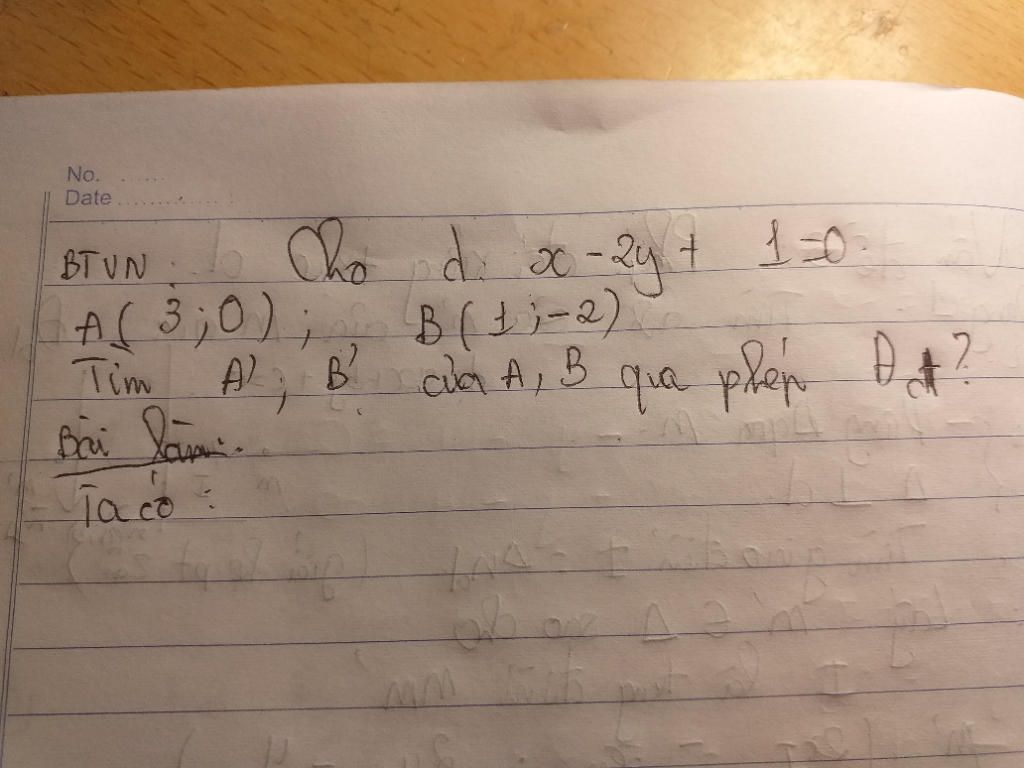 No. ......
Date ....................
BTVN. Cho d: x - 2y + 1 = 0.
A( 3 ; 0 ) ; B ( 1 ; -2 )
Tìm A' ; B' của A, B qua phép Đd ?
Bài làm:
Ta có :